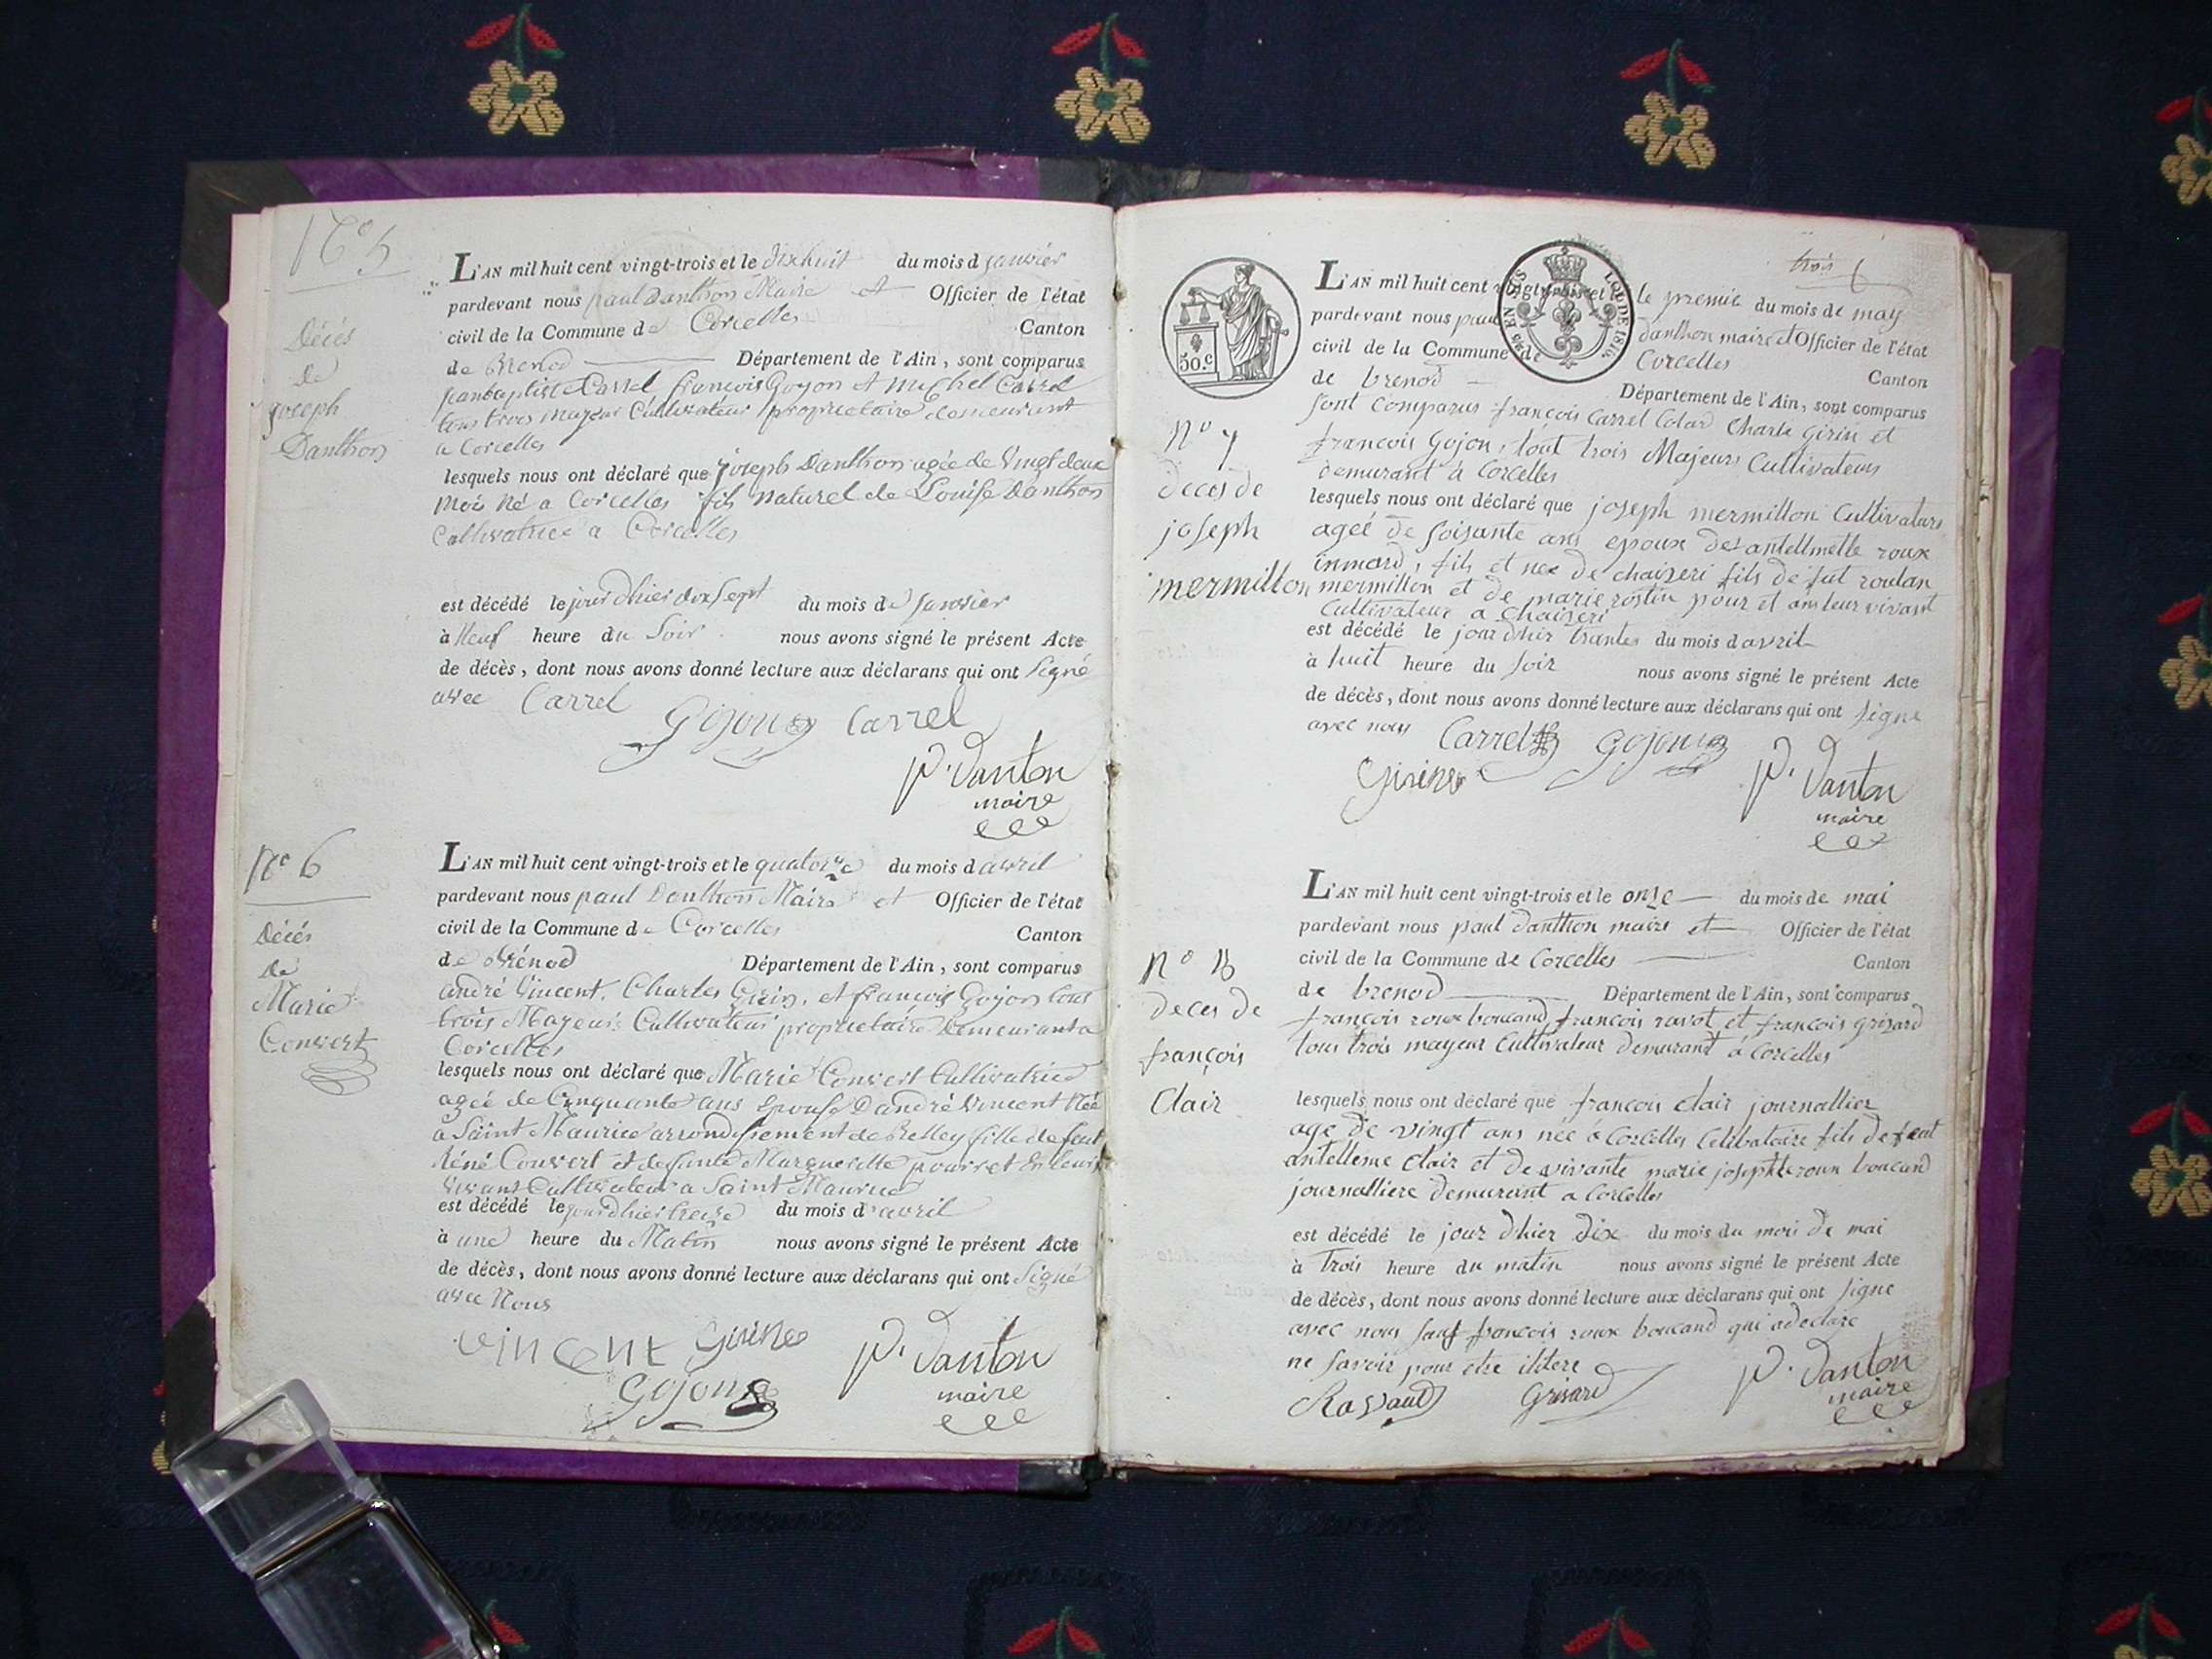 N° 5
Décés
de
joseph
Danthon
L'AN mil huit cent vingt-trois et le dixhuit du mois d janvier
pardevant nous paul Danthon Maire et Officier de l'état
civil de la Commune de Corcelles Canton
de Brenod Département de l'Ain, sont comparus
janbaptiste Carrel françois Gojon et Michel Carrel
tous trois majeur Cultivateur proprietaire demeurant
a Corcelles
lesquels nous ont déclaré que joseph Danthon agée de Vingt deux
Mois né a Corcelles fils naturel de Louise Danthon
Cultivatrice a Corcelles
est décédé le jour dhier dix Sept du mois de Janvier
à Neuf heure du Soir nous avons signé le présent Acte
de décès, dont nous avons donné lecture aux déclarans qui ont Signé
avec Carrel Gojon Carrel
P. Danton
maire
N° 6
Décés
de
Marie
Convert
L'AN mil huit cent vingt-trois et le quatorze du mois d avril
pardevant nous paul Danthon Maire et Officier de l'état
civil de la Commune de Corcelles Canton
de Brénod Département de l'Ain, sont comparus
andré Vincent, Charles Girin, et françois Gojon tous
trois Mageurs Cultivateur propriétaire Demeurant a
Corcelles
lesquels nous ont déclaré que Marie Convert Cultivatrice
agée de Cinquante ans Epouse D andré Vincent Née
a Saint Maurice arrondissement de Belley fille de feut
Réné Convert et de Marguerite pourret En leurs
Vivant Cultivateur a Saint Maurice
est décédé le jour dhier treize du mois d'avril
à une heure du Matin nous avons signé le présent Acte
de décès, dont nous avons donné lecture aux déclarans qui ont Signé
avec Nous
Vincent Girin
Gojon
P. Danton
maire
trois
50.c
EN SUS
LOI DE 1816
N° 7
deces de
joseph
mermillon
L'AN mil huit cent vingt-trois et le le premie du mois de may
pardevant nous paul danthon maire et Officier de l'état
civil de la Commune de Corcelles Canton
de brenod Département de l'Ain, sont comparus
sont comparus françois Carrel Colar Charle Girin et
francois Gojon, tout trois Majeurs Cultivateurs
demurant à Corcelles
lesquels nous ont déclaré que joseph mermillon Cultivateur
ageé de soisante ans epoux de antellmette roux
inmard, fils et nee de chaizeri fils de fut roulan
mermillon et de marie rostin pour et an leur vivant
Cultivateur a Chaizeri
est décédé le jour dhir trante du mois d avril
à huit heure du soir nous avons signé le présent Acte
de décès, dont nous avons donné lecture aux déclarans qui ont signe
avec nous Carrel Gojon
Girin
P. Danton
maire
N° 8
deces de
françois
Clair
L'AN mil huit cent vingt-trois et le onze du mois de mai
pardevant nous paul danthon maire et Officier de l'état
civil de la Commune de Corcelles Canton
de brenod Département de l'Ain, sont comparus
françois roux boucand, françois ravot et françois grisard
tous trois mayeur Cultivateur demurant á Corcelles
lesquels nous ont déclaré que francois clair journallier
age de vingt ans née á Corcelles Celibataire fils de feut
antelleme clair et de vivante marie josephte roux boucand
journalliere demurant a Corcelles
est décédé le jour dhier dix du mois du mois de mai
à trois heure du matin nous avons signé le présent Acte
de décès, dont nous avons donné lecture aux déclarans qui ont signe
avec nous sauf francois roux boucand qui adeclare
ne savoir pour etre ilitere
Ravaud Grisard
P. Danton
maire